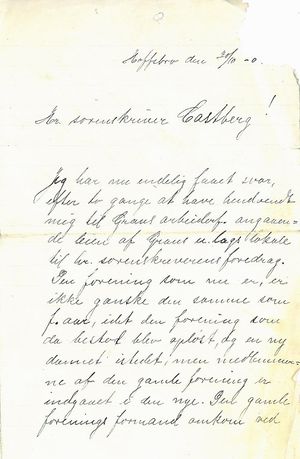 Hoffsbro den 20/11 -0.
Hr. sorenskriver Castberg!
Jeg har nu endelig faaet svar,
efter to gange at have henvendt
mig til Grans arbeiderf. angaaen-
de leien af Grans u.lags lokale
til hr. sorenskriverens foredrag.
Den forening som nu er, er
ikke ganske den samme som
f. aar, idet den forening som
da bestod blev opløst, og en ny
dannet istedet, men medlemmer-
ne af den gamle forening er
indgaaet i den nye. Den gamle
forenings formand omkom ved